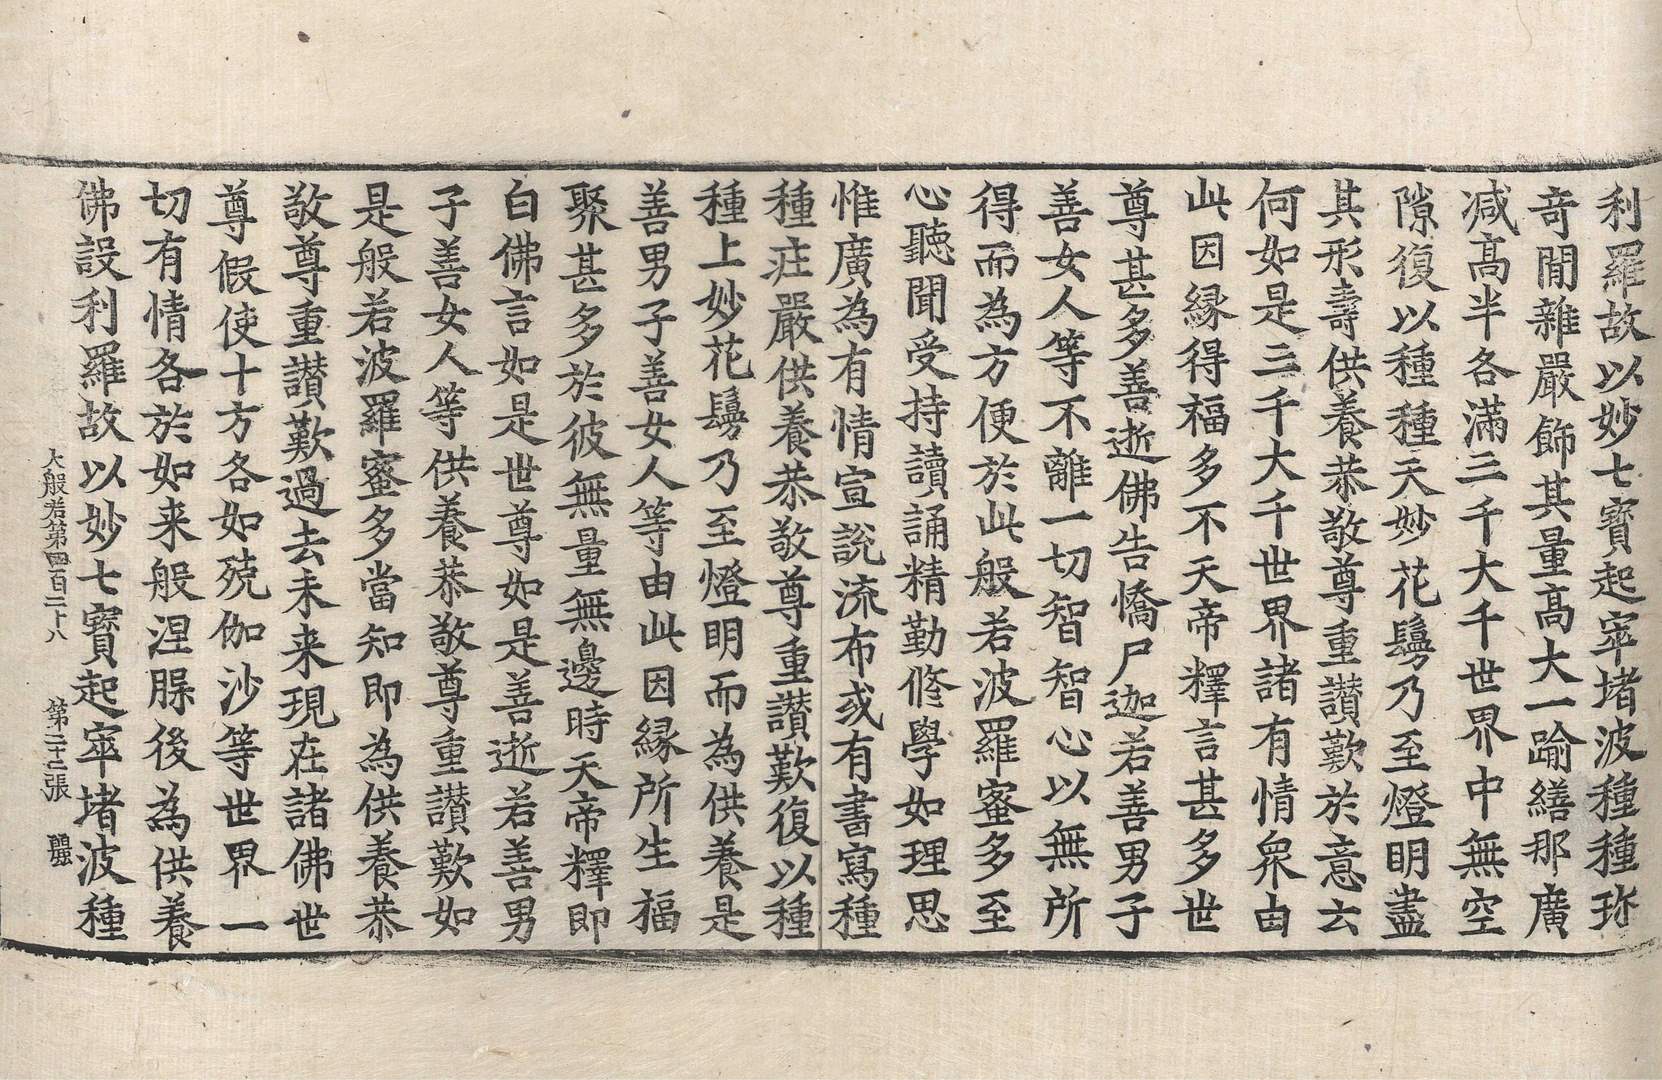 利羅故以妙七寳起窣堵波種種珎
竒閒雜嚴飾其量髙大一踰繕那廣
减髙半各滿三千大千世界中無空
隙復以種種天妙花鬘乃至燈明盡
其形壽供養恭敬尊重讃歎於意云
何如是三千大千世界諸有情衆由
此因縁得福多不天帝釋言甚多世
尊甚多善逝佛告憍尸迦若善男子
善女人等不離一切智智心以無所
得而為方便於此般若波羅蜜多至
心聽聞受持讀誦精勤修學如理思
惟廣為有情宣說流布或有書寫種
種莊嚴供養恭敬尊重讃歎復以種
種上妙花鬘乃至燈明而為供養是
善男子善女人等由此因縁所生福
聚甚多於彼無量無邊時天帝釋即
白佛言如是世尊如是善逝若善男
子善女人等供養恭敬尊重讃歎如
是般若波羅蜜多當知即為供養恭
敬尊重讃歎過去未来現在諸佛世
尊假使十方各如殑伽沙等世界一
切有情各於如来般涅槃後為供養
佛設利羅故以妙七寳起窣堵波種
大般若第四百二十八 第二十二張